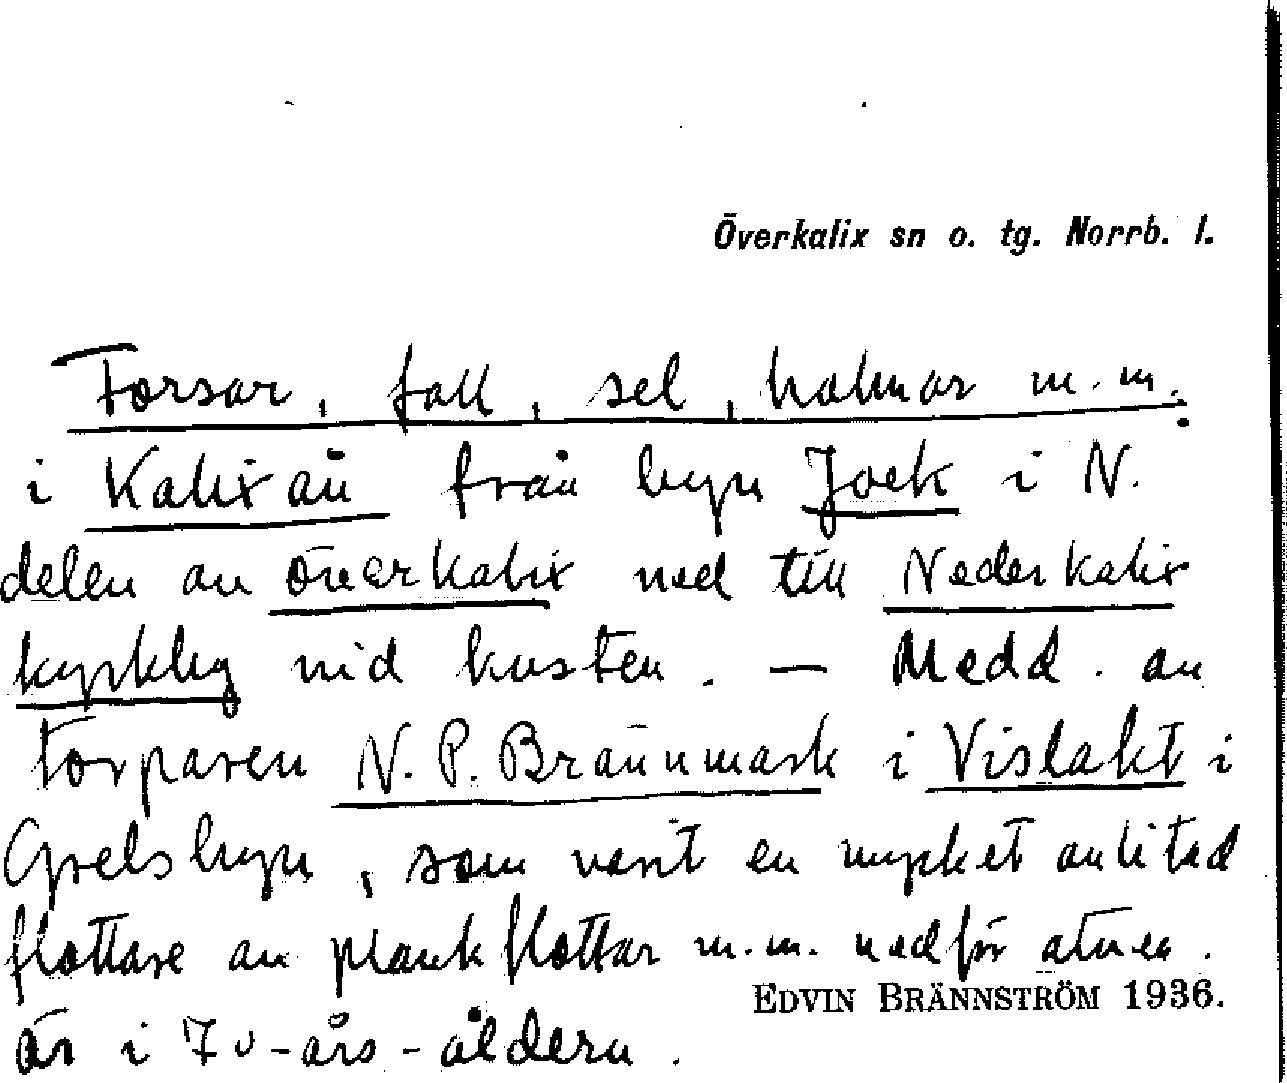 Överkalix sn o. tg. Norrb. l.
Forsar, fall, sel, holmar m.m.
i Kalixän från byn Jock i N.
delen av Överkalix ned till Nederkalix
kyrkby vid kusten. — Medd. av
torparen N. P. Brännmark i Vislakt i
Grelsbyn, som varit en mycket anlitad
flottare av plankflottar m.m. nedför älven.
EDVIN BRÄNNSTRÖM 1936.
Är i 70-års-åldern.